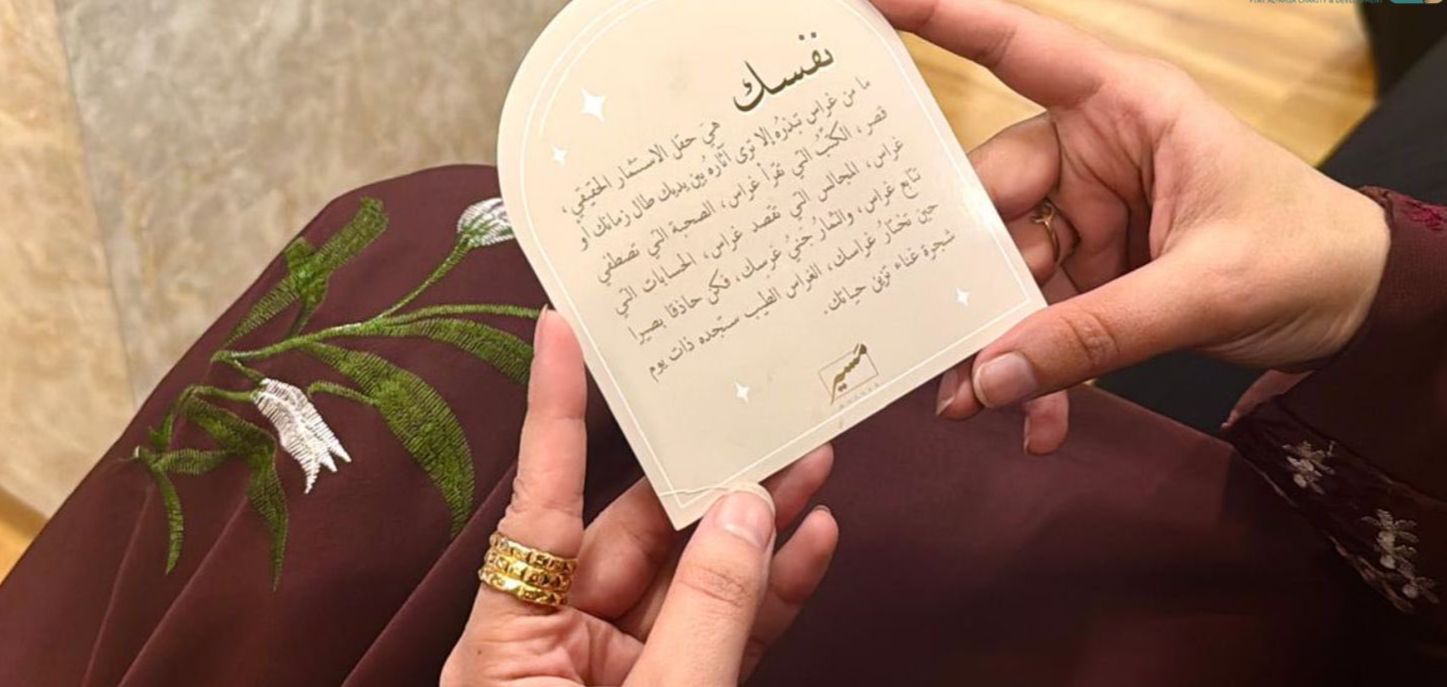 نفسك
هي حقل الاستثمار الحقيقي،
ما من غراس تبذرُه إلا ترى آثارُه بين يديك طال زمانك أو
قصر، الكتبُ التي تقرأ غراس، الصحبة التي تصطفي
غراس، المجالس التي تقصد غراس، الحسابات التي
تتابع غراس، والثمارُ جنيُ غرسك، فكن حاذقا بصيرا
حين تختارُ غراسك، الغراس الطيب ستجده ذات يوم
شجرة غناء تزين حياتك.
مَسير